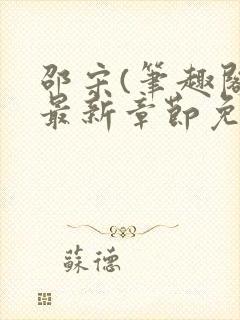 邵宋(筆趣閣
最新章節免
蘇德